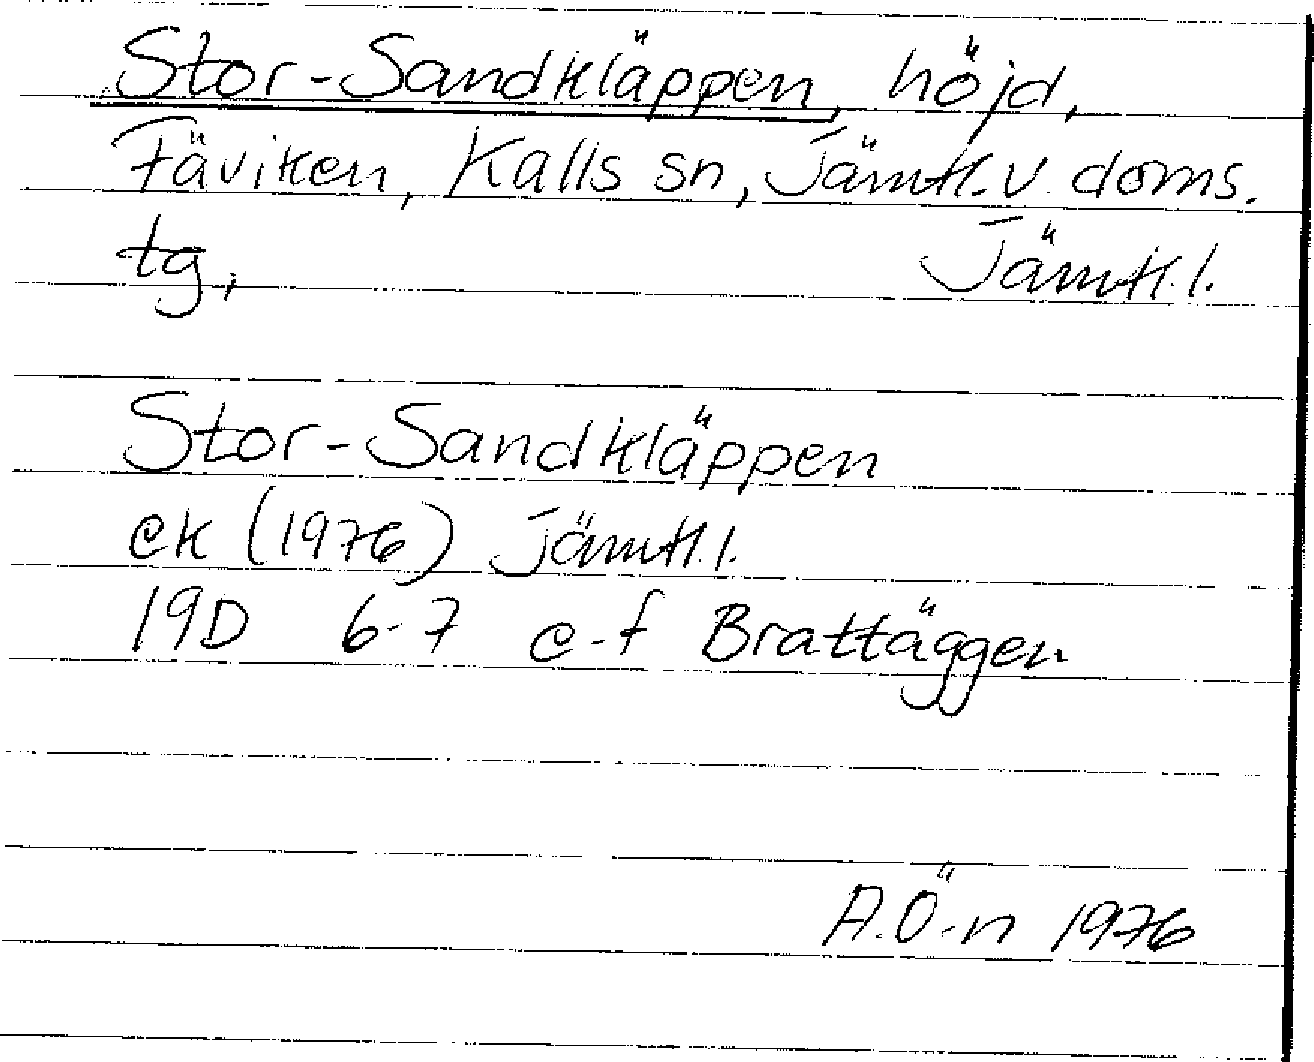 Stor-Sandkläppen, höjd,
Fäviken, Kalls sn, Jämtl. v. doms.
tg, Jämtl. l.
Stor-Sandkläppen
ek (1976) Jämtl. l.
19D 6-7 e-f Brattäggen
A.Ö-n 1976